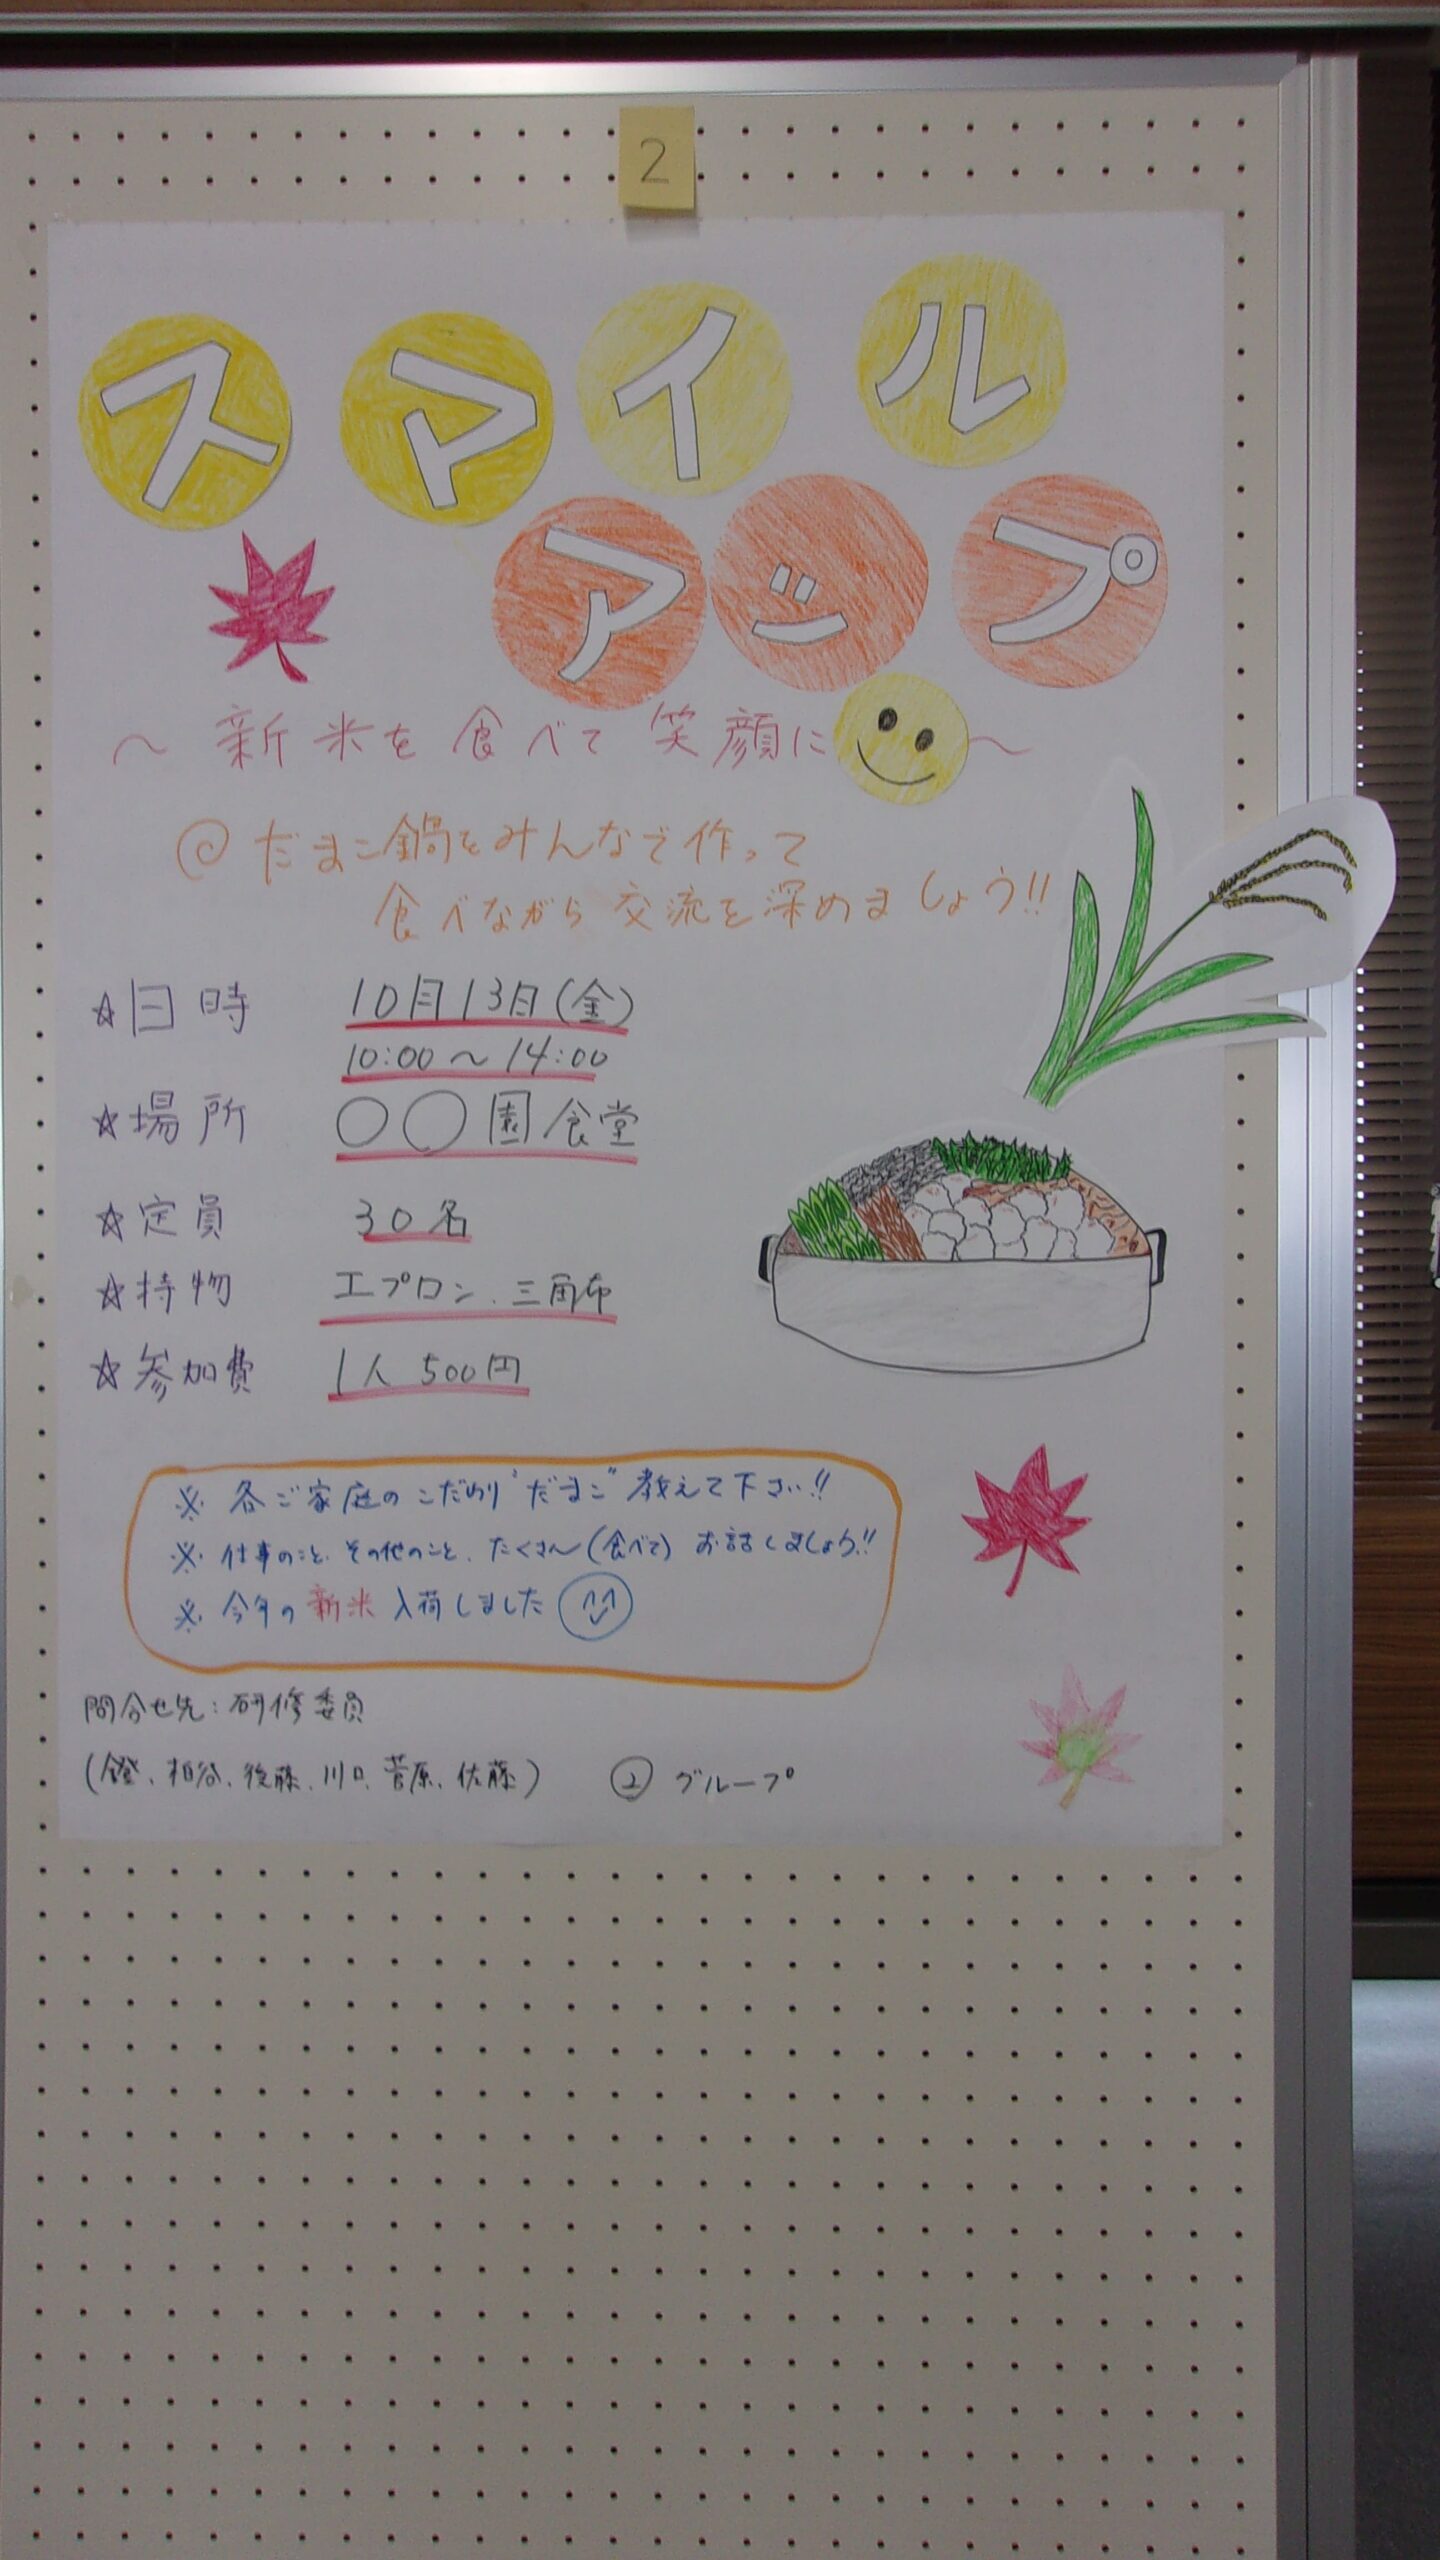 2
スマイル
アップ
～ 新米を食べて笑顔に ～
◎ だまこ鍋をみんなで作って
食べながら交流を深めましょう!!
☆日時 10月13日(金)
10:00～14:00
☆場所 ○○園食堂
☆定員 30名
☆持物 エプロン、三角布
☆参加費 1人 500円
※ 各ご家庭のこだわり"だまこ"教えて下さい!!
※ 仕事のこと、その他のこと、たくさん(食べて)お話しましょう!!
※ 今年の新米入荷しました
問合せ先：研修委員
(鐙、柏谷、後藤、川口、菅原、佐藤) ② グループ